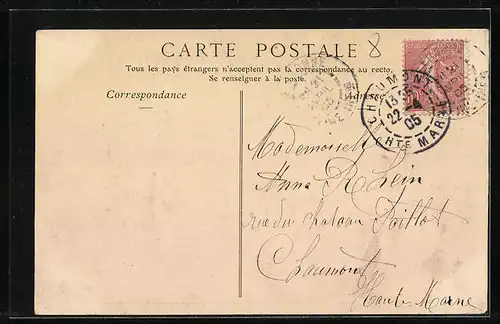 CARTE POSTALE
8
Tous les pays étrangers n'acceptent pas la correspondance au recto.
Se renseigner à la poste.
Correspondance
Adresse
CHAUMONT
22 - 4
05
HTE MARNE
Mademoiselle
Anna Rhein
rue du chateau Paillot
Chaumont
Haute-Marne